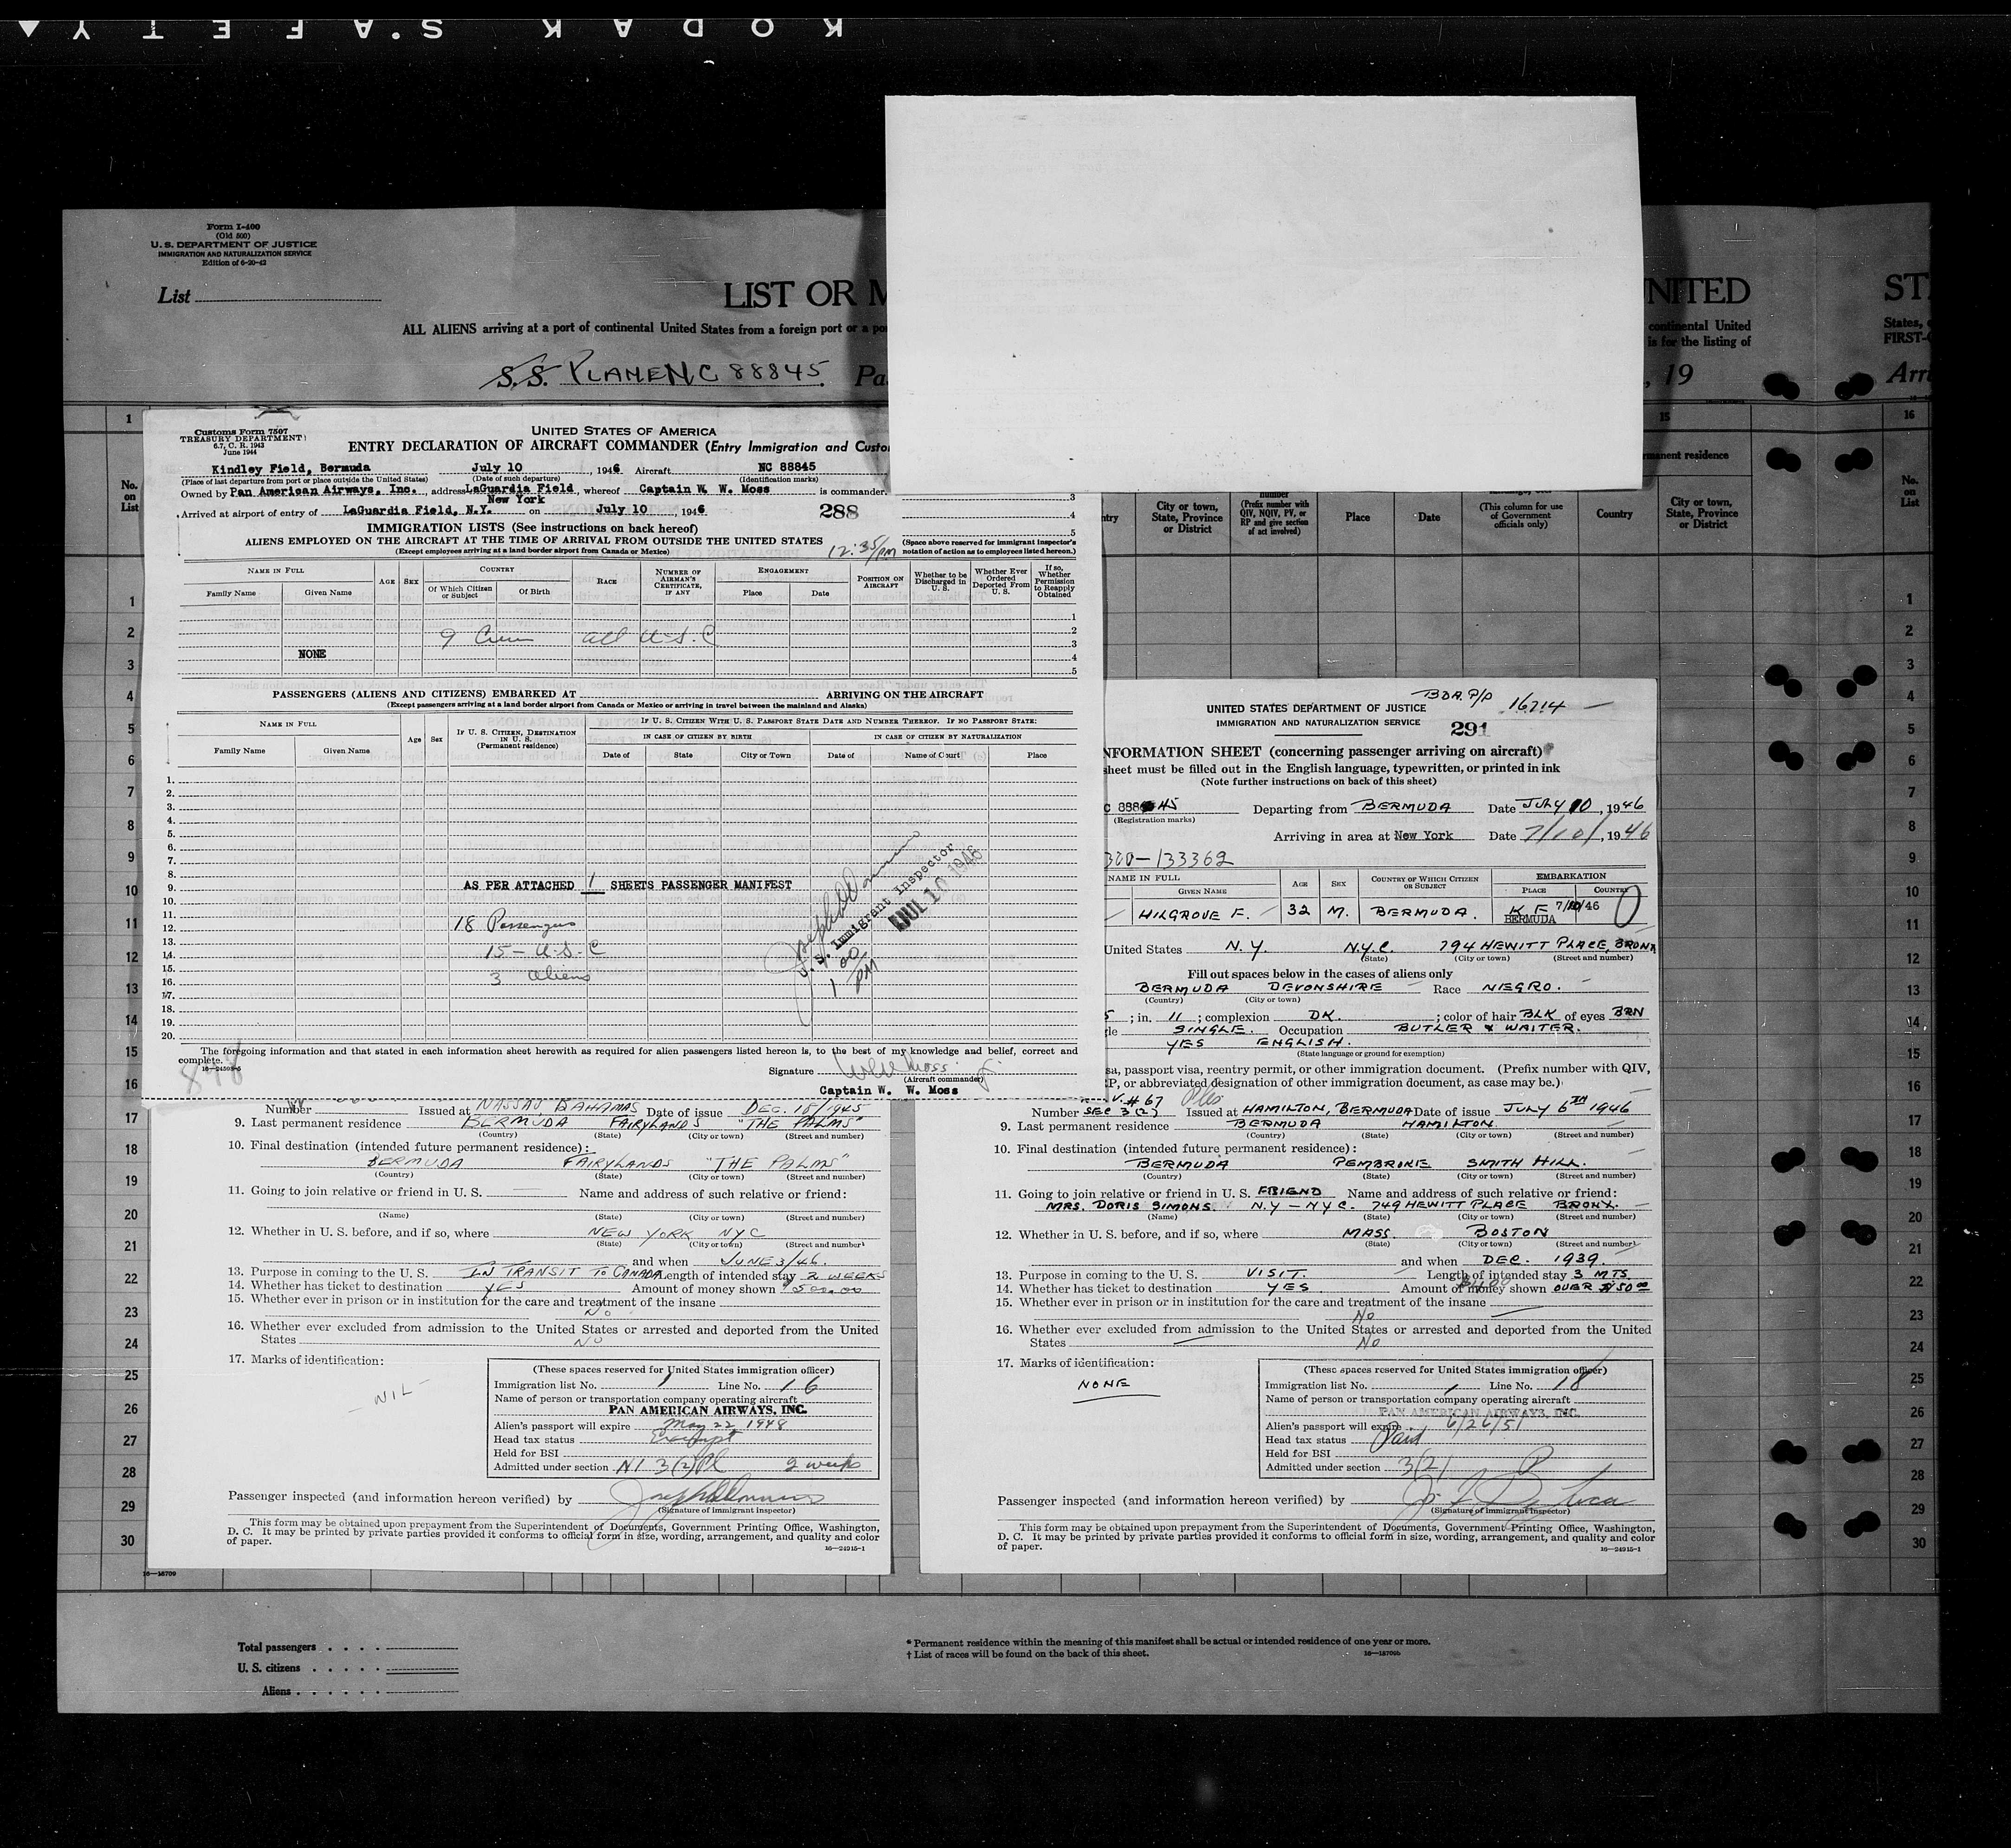 KODAK SAFETY
Form I-400
(Old 500)
U. S. DEPARTMENT OF JUSTICE
IMMIGRATION AND NATURALIZATION SERVICE
Edition of 6-20-42
List
LIST OR M
NITED
ST
ALL ALIENS arriving at a port of continental United States from a foreign port or a po
continental United
is for the listing of
States,
FIRST-
S.S. PLANE NC 88845
Pa
, 19
Arri
Customs Form 7507
TREASURY DEPARTMENT
6.7, C. R. 1943
June 1944
UNITED STATES OF AMERICA
ENTRY DECLARATION OF AIRCRAFT COMMANDER (Entry Immigration and Custo
Kindley Field, Bermuda July 10, 1946 Aircraft NC 88845
(Place of last departure from port or place outside the United States) (Date of such departure) (Identification marks)
Owned by Pan American Airways, Inc., address LaGuardia Field, whereof Captain W. W. Moss is commander.
New York
Arrived at airport of entry of LaGuardia Field, N.Y. on July 10, 1946 288
IMMIGRATION LISTS (See instructions on back hereof)
ALIENS EMPLOYED ON THE AIRCRAFT AT THE TIME OF ARRIVAL FROM OUTSIDE THE UNITED STATES
(Except employees arriving at a land border airport from Canada or Mexico)
12:35/PM
(Space above reserved for immigrant inspector's
notation of action as to employees listed hereon.)
NAME IN FULL
Family Name Given Name
AGE SEX
COUNTRY
Of Which Citizen or Subject Of Birth
RACE
NUMBER OF AIRMAN'S CERTIFICATE, IF ANY
ENGAGEMENT
Place Date
POSITION ON AIRCRAFT
Whether to be Discharged in U. S.
Whether Ever Ordered Deported From U. S.
If so, Whether Permission to Reapply Obtained
9 Crew all U.S.C
NONE
PASSENGERS (ALIENS AND CITIZENS) EMBARKED AT ARRIVING ON THE AIRCRAFT
(Except passengers arriving at a land border airport from Canada or Mexico or arriving in travel between the mainland and Alaska)
NAME IN FULL
Family Name Given Name
Age Sex
IF U. S. CITIZEN, DESTINATION IN U. S. (Permanent residence)
IF U. S. CITIZEN WITH U. S. PASSPORT STATE DATE AND NUMBER THEREOF. IF NO PASSPORT STATE:
IN CASE OF CITIZEN BY BIRTH IN CASE OF CITIZEN BY NATURALIZATION
Date of State City or Town Date of Name of Court Place
1.
2.
3.
4.
5.
6.
7.
8.
9. AS PER ATTACHED 1 SHEETS PASSENGER MANIFEST
10.
11.
12. 18 Passengers
13.
14. 15 - U.S.C
15.
16. 3 aliens
17.
18.
19.
20.
U. S. Immigrant Inspector
JUL 10 1946
1 00/PM
The foregoing information and that stated in each information sheet herewith as required for alien passengers listed hereon is, to the best of my knowledge and belief, correct and
complete.
16-24598-5
Signature W W Moss
(Aircraft commander)
Captain W. W. Moss
Number Issued at NASSAU BAHAMAS Date of issue DEC. 18/1945
9. Last permanent residence BERMUDA FAIRYLANDS "THE PALMS"
(Country) (State) (City or town) (Street and number)
10. Final destination (intended future permanent residence):
BERMUDA FAIRYLANDS "THE PALMS"
(Country) (State) (City or town) (Street and number)
11. Going to join relative or friend in U. S. Name and address of such relative or friend:
(Name) (State) (City or town) (Street and number)
12. Whether in U. S. before, and if so, where NEW YORK NYC
(State) (City or town) (Street and number)
and when JUNE 3/46.
13. Purpose in coming to the U. S. IN TRANSIT TO CANADA Length of intended stay 2 WEEKS
14. Whether has ticket to destination YES Amount of money shown $500.00
15. Whether ever in prison or in institution for the care and treatment of the insane
NO
16. Whether ever excluded from admission to the United States or arrested and deported from the United
States NO
17. Marks of identification:
- NIL -
(These spaces reserved for United States immigration officer)
Immigration list No. 1 Line No. 16
Name of person or transportation company operating aircraft
PAN AMERICAN AIRWAYS, INC.
Alien's passport will expire May 22 1948
Head tax status Exempt
Held for BSI
Admitted under section NI 3(2) Pl 2 weeks
Passenger inspected (and information hereon verified) by
(Signature of immigrant inspector)
This form may be obtained upon prepayment from the Superintendent of Documents, Government Printing Office, Washington,
D. C. It may be printed by private parties provided it conforms to official form in size, wording, arrangement, and quality and color
of paper.
16-24915-1
BDA. P/P 16714
UNITED STATES DEPARTMENT OF JUSTICE
IMMIGRATION AND NATURALIZATION SERVICE
291
NFORMATION SHEET (concerning passenger arriving on aircraft)
sheet must be filled out in the English language, typewritten, or printed in ink
(Note further instructions on back of this sheet)
C 88845 Departing from BERMUDA Date JULY 10, 1946
(Registration marks)
Arriving in area at New York Date 7/10/, 1946
300-133362
NAME IN FULL
GIVEN NAME
AGE SEX COUNTRY OF WHICH CITIZEN OR SUBJECT
EMBARKATION
PLACE COUNTRY
HILGROVE F. 32 M. BERMUDA. K F 7/10/46
BERMUDA
United States N.Y. N.Y.C. 794 HEWITT PLACE, BRONX
(State) (City or town) (Street and number)
Fill out spaces below in the cases of aliens only
BERMUDA DEVONSHIRE Race NEGRO.
(Country) (City or town)
5; in. 11; complexion DK.; color of hair BLK of eyes BRN
le SINGLE. Occupation BUTLER & WAITER.
YES ENGLISH.
(State language or ground for exemption)
sa, passport visa, reentry permit, or other immigration document. (Prefix number with QIV,
P, or abbreviated designation of other immigration document, as case may be.)
V. # 67
Number SEC 3(2) Issued at HAMILTON, BERMUDA Date of issue JULY 6TH 1946
9. Last permanent residence BERMUDA HAMILTON.
(Country) (State) (City or town) (Street and number)
10. Final destination (intended future permanent residence):
BERMUDA PEMBROKE SMITH HILL.
(Country) (State) (City or town) (Street and number)
11. Going to join relative or friend in U. S. FRIEND Name and address of such relative or friend:
MRS. DORIS SIMONS. N.Y - NYC. 749 HEWITT PLACE BRONX.
(Name) (State) (City or town) (Street and number)
12. Whether in U. S. before, and if so, where MASS. BOSTON
(State) (City or town) (Street and number)
and when DEC. 1939.
13. Purpose in coming to the U. S. VISIT. Length of intended stay 3 MTS.
14. Whether has ticket to destination YES Amount of money shown OVER $50.00
15. Whether ever in prison or in institution for the care and treatment of the insane
No
16. Whether ever excluded from admission to the United States or arrested and deported from the United
States No
17. Marks of identification:
NONE
(These spaces reserved for United States immigration officer)
Immigration list No. 1 Line No. 18
Name of person or transportation company operating aircraft
PAN AMERICAN AIRWAYS, INC.
Alien's passport will expire 6/26/51
Head tax status Paid
Held for BSI
Admitted under section 3(2)
Passenger inspected (and information hereon verified) by
(Signature of immigrant inspector)
This form may be obtained upon prepayment from the Superintendent of Documents, Government Printing Office, Washington,
D. C. It may be printed by private parties provided it conforms to official form in size, wording, arrangement, and quality and color
of paper.
16-24915-1
16-18709
Total passengers
U. S. citizens
Aliens
* Permanent residence within the meaning of this manifest shall be actual or intended residence of one year or more.
† List of races will be found on the back of this sheet.
16-18709b